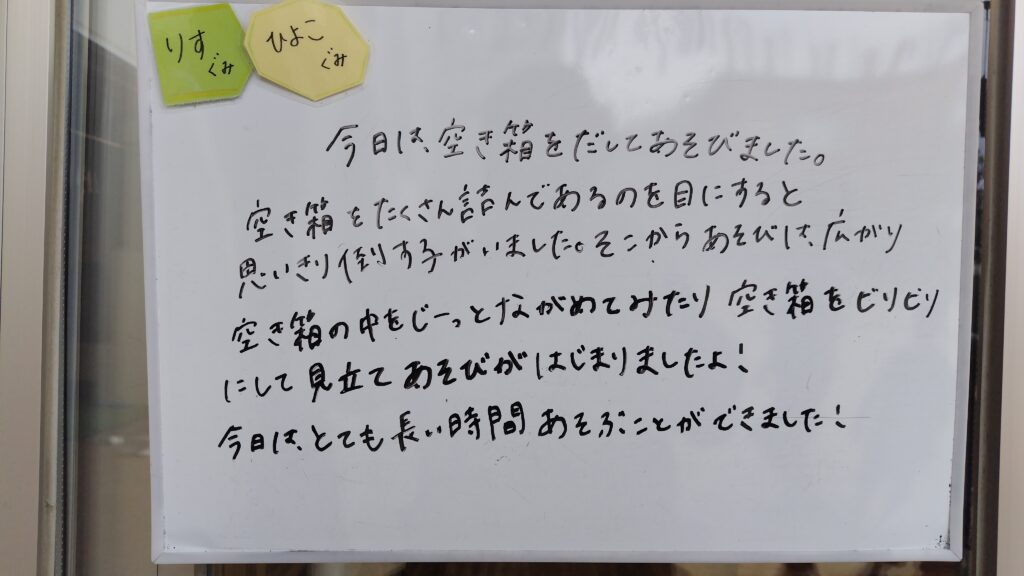 りす
ぐみ
ひよこ
ぐみ
今日は、空き箱をだしてあそびました。
空き箱をたくさん詰んであるのを目にすると
思いきり倒す子がいました。そこからあそびは、広がり
空き箱の中をじーっとながめてみたり 空き箱をビリビリ
にして見立てあそびがはじまりましたよ!
今日は、とても長い時間あそぶことができました!